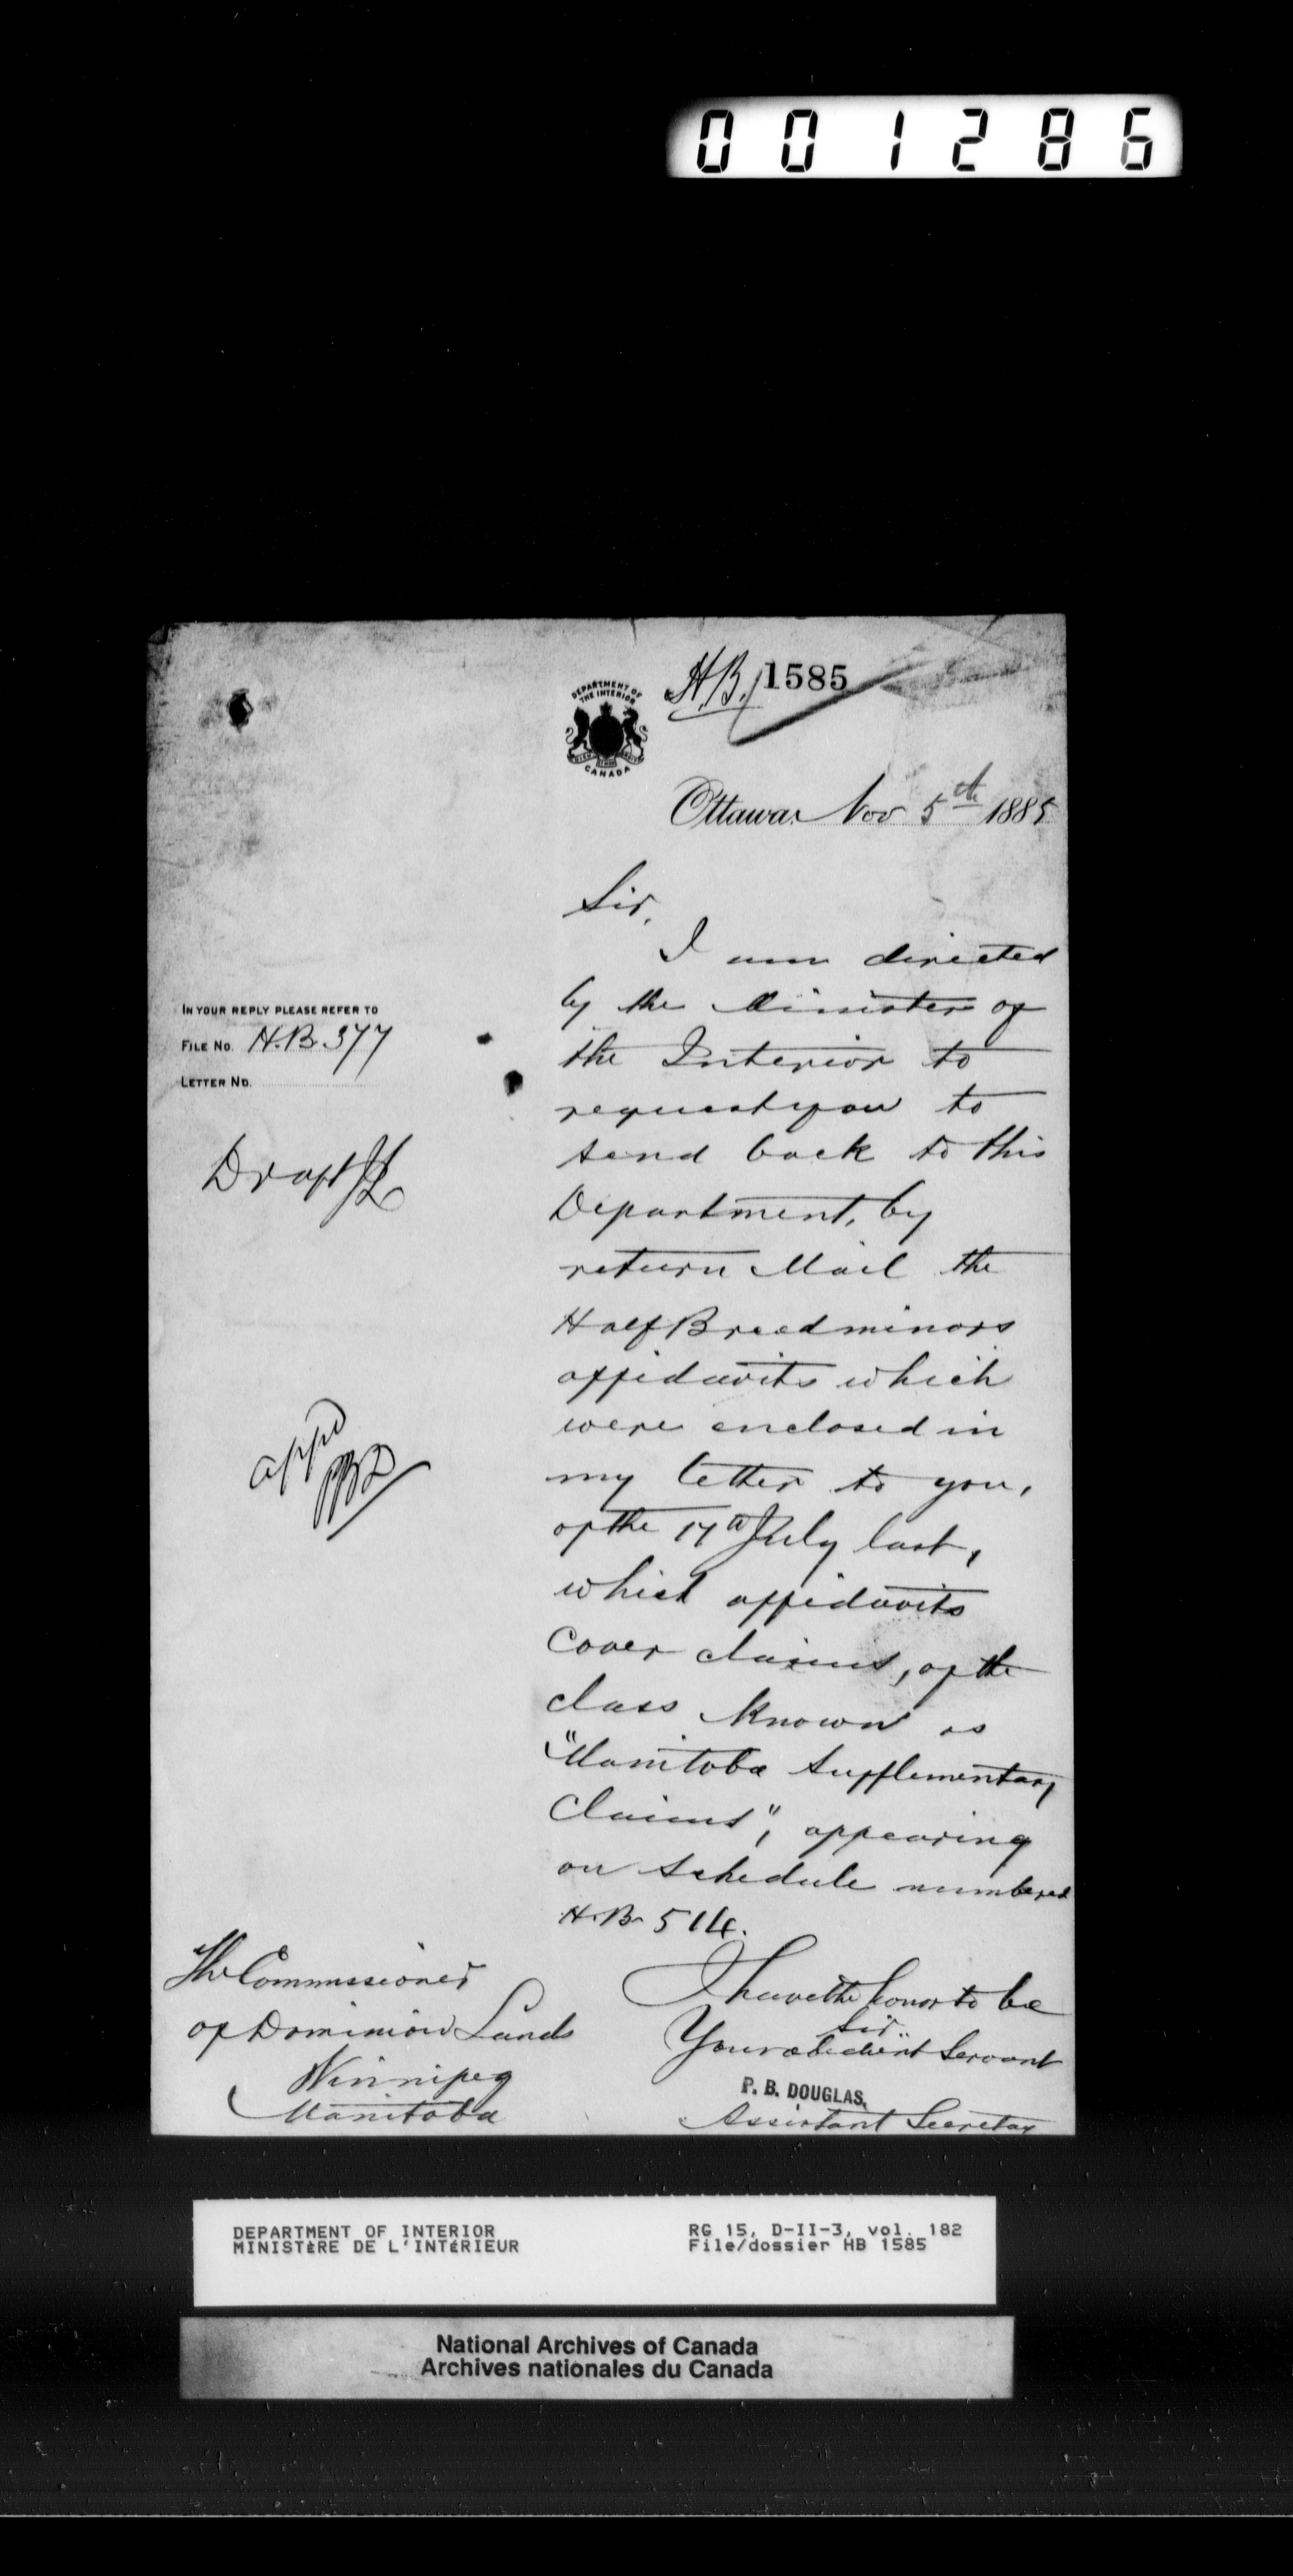 001286
H.B. 1585
DEPARTMENT OF
THE INTERIOR
CANADA
Ottawa Nov 5th 1885
Sir,
I am directed
by the Minister of
the Interior to
request you to
send back to this
Department, by
return Mail the
Half Breed minors
affidavits which
were enclosed in
my letter to you,
of the 17th July last,
which affidavits
cover claims, of the
class known as
"Manitoba Supplementary
Claims", appearing
on Schedule numbered
H.B. 514.
I have the honor to be
Sir,
Your obedient Servant
P. B. DOUGLAS,
Assistant Secretary
IN YOUR REPLY PLEASE REFER TO
FILE NO. H.B. 377
LETTER NO.
Draft
appd
PBD
The Commissioner
of Dominion Lands
Winnipeg
Manitoba
DEPARTMENT OF INTERIOR
MINISTÈRE DE L'INTÉRIEUR
RG 15, D-II-3, vol. 182
File/dossier HB 1585
National Archives of Canada
Archives nationales du Canada